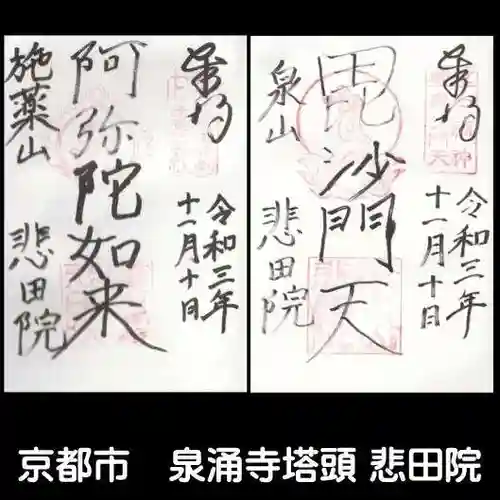 奉拝
令和三年
十一月十日
毘沙門天
泉山
悲田院
奉拝
令和三年
十一月十日
阿弥陀如来
施薬山
悲田院
京都市 泉涌寺塔頭 悲田院